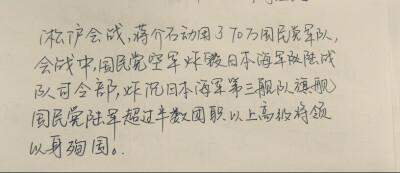 淞沪会战，蒋介石动用370万国民党军队，
会战中，国民党空军炸毁日本海军陆战
队司令部，炸沉日本海军第三舰队旗舰
国民党陆军超过半数团职以上高级将领
以身殉国。